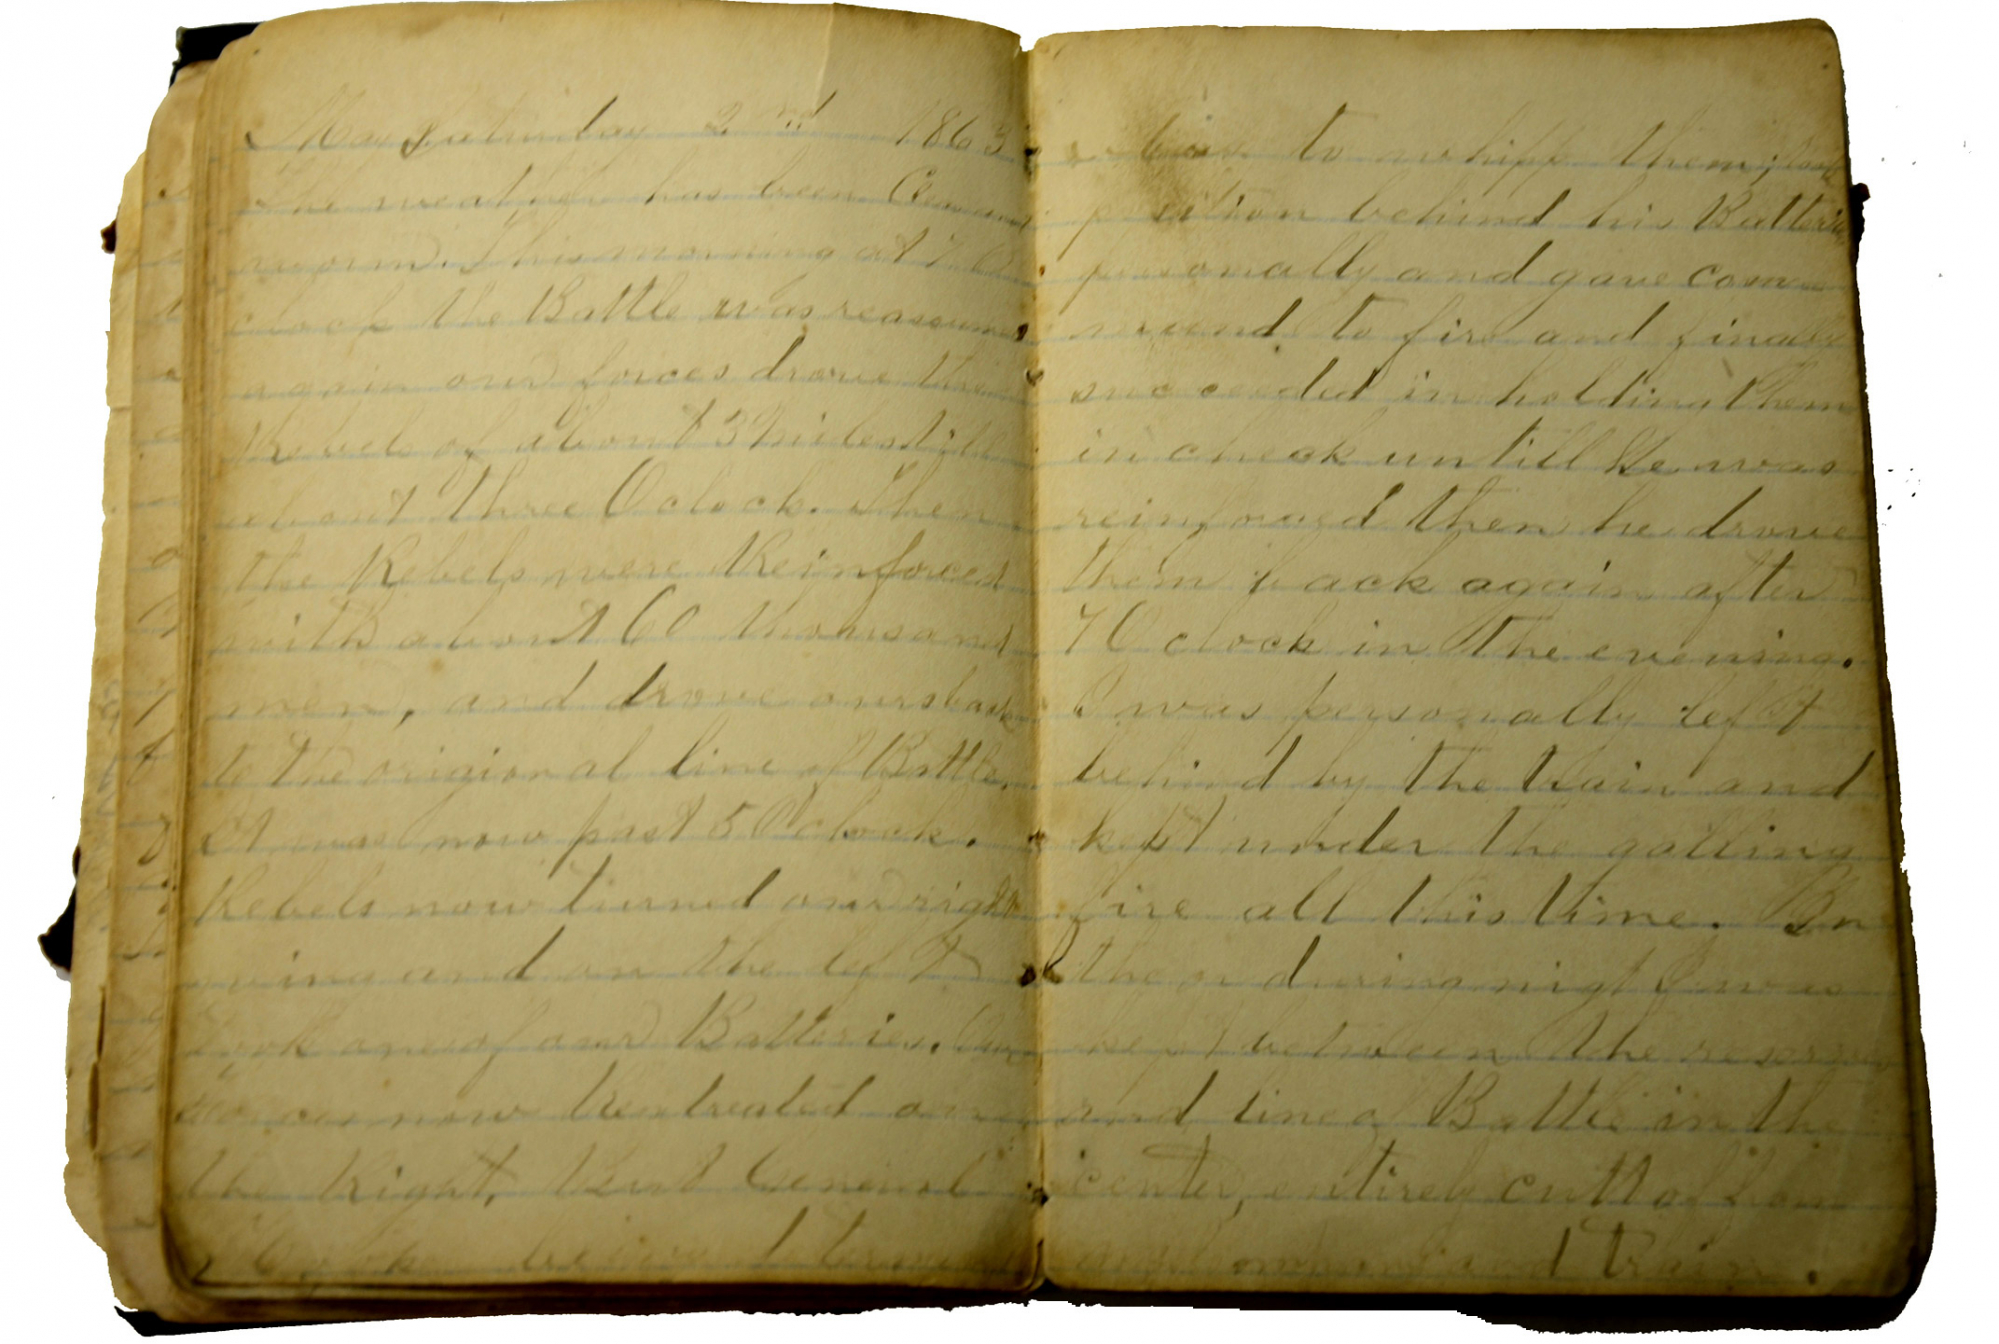 May Saturday 2nd 1863
The weather has been Clear and
warm. This morning at 7 O
clock the Battle was reasumed
again our forces drove the
Rebels of about 3 miles till
about three Oclock. Then
the Rebels were Reinforced
with about 60 thousand
men, and drove ours back
to the origional line of Battle.
It was now past 5 O clock.
Rebels now turned our right
wing and on the left
took one of our Batteries. Our
forces now Reatreated on
the Right, But General
to whipp them, took
position behind his Batteries
personally and gave com
mand to fire and finally
succeeded in holding them
in check untill He was
reinforced then he drove
them back again after
7 O clock in the evening.
I was personally left
behind by the train and
kept under the galling
fire all this time. In
the during night I was
kept between the reserve
and line of Battle in the
center, entirely cutt of from
command Train.